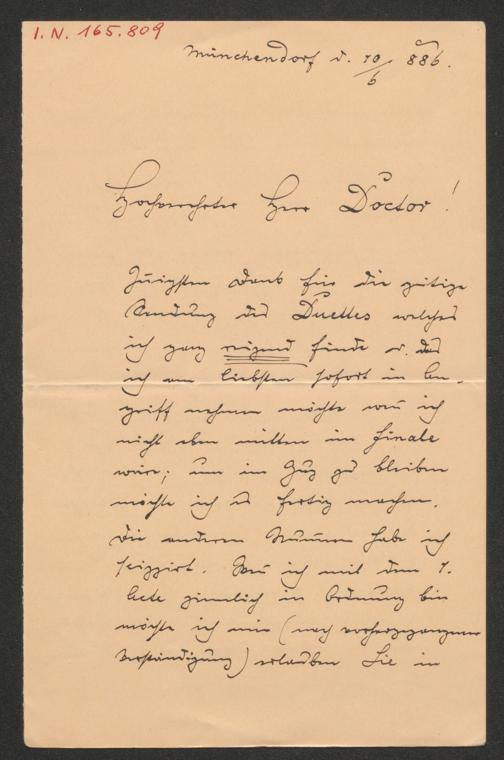 I. N. 165.809
Münchendorf d. 10/6 886.
Hochverehrter Herr Doctor!
Innigsten Dank für die gütige
Sendung des Duettes welches
ich ganz reizend finde u. das
ich am liebsten sofort in An-
griff nehmen möchte wenn ich
nicht eben mitten im Finale
wäre; um im Zug zu bleiben
möchte ich es fertig machen.
Die anderen Nummern habe ich
skizzirt. Wenn ich mit dem 1.
Acte ziemlich in Ordnung bin
möchte ich mir (nach vorhergegangener
Verständigung) erlauben Sie in